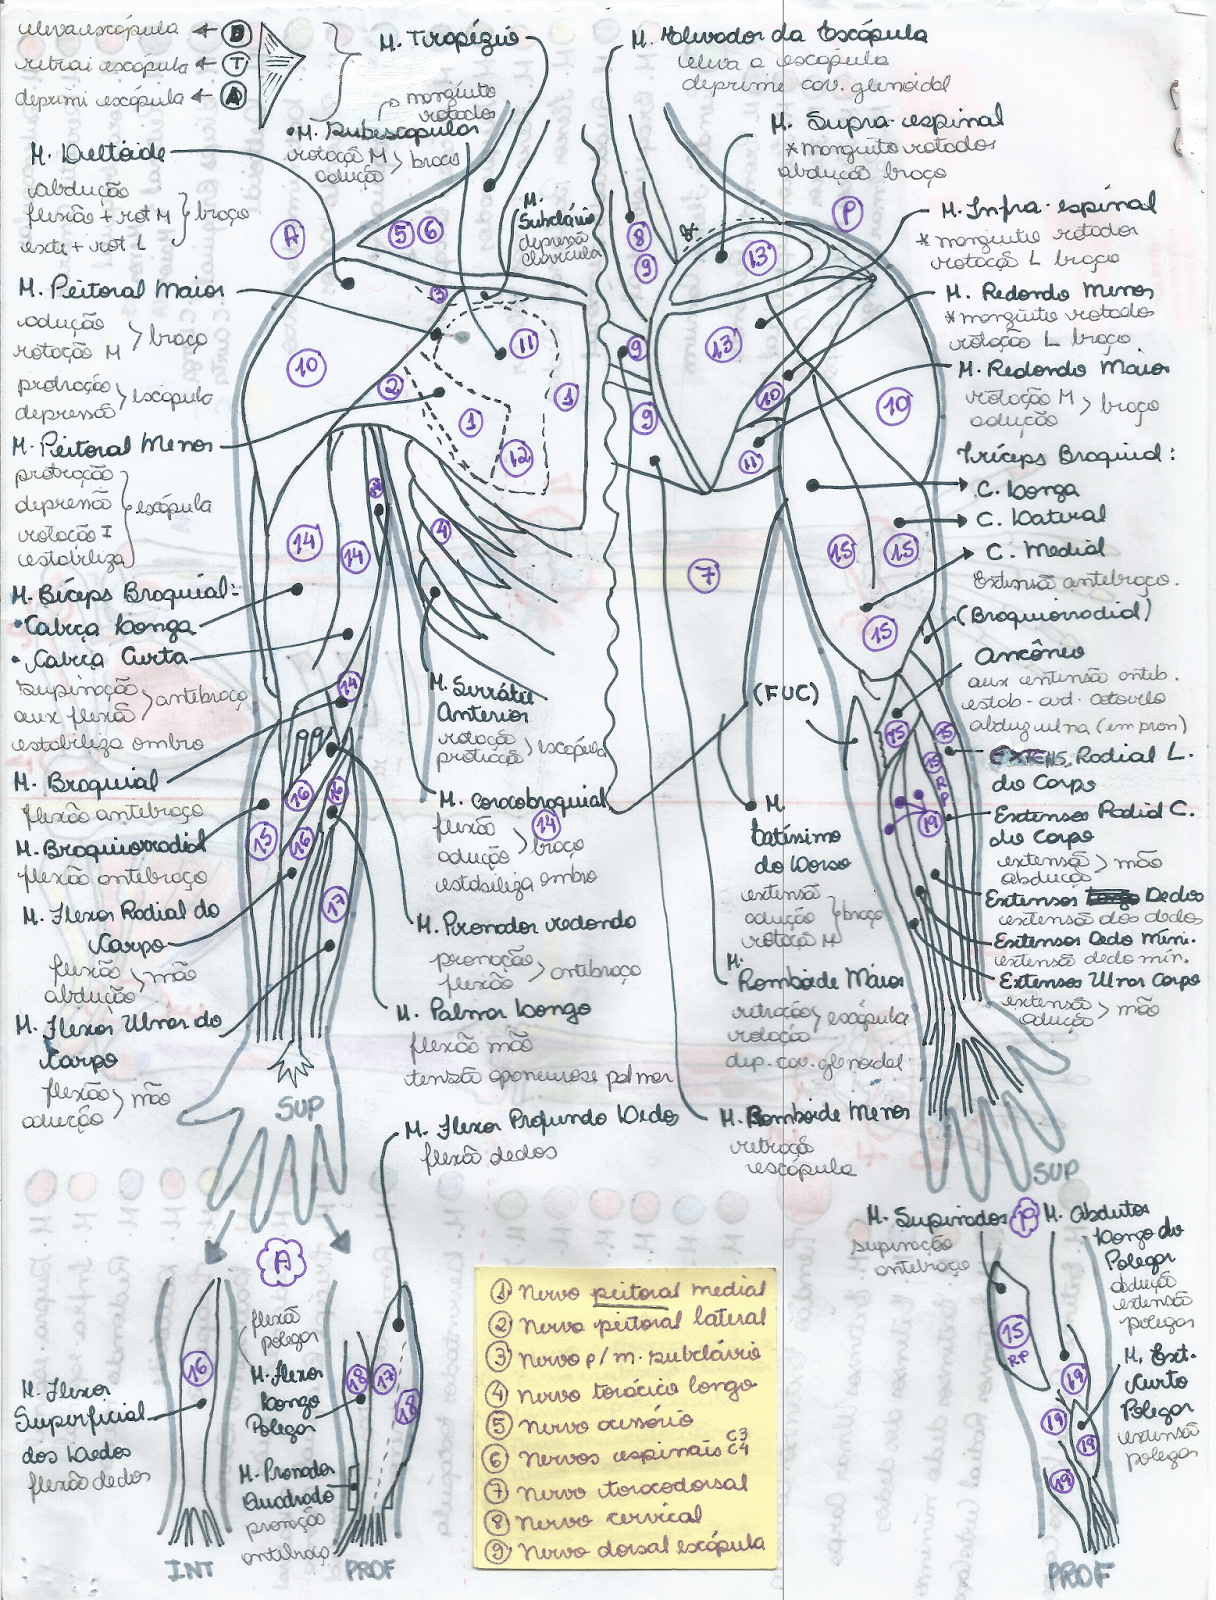 eleva escápula ← D
retrai escápula ← T
deprimi escápula ← A
M. Trapézio
M. Elevador da Escápula
eleva a escápula
deprime cav. glenoidal
manguito
rotador
• M. Subescapular
rotação M
adução
braço
M. Supra-espinal
* manguito rotador
abdução braço
M. Deltóide
abdução
flexão + rot M
exte + rot L
braço
M. Subclávio
depressã
clavícula
M. Infra-espinal
* manguito rotador
rotacã L braço
M. Peitoral Maior
adução
rotação M
braço
protração
depressã
escápula
M. Redondo Menor
* manguito rotador
rotação L braço
M. Redondo Maior
rotação M
adução
braço
M. Peitoral Menor
protração
depressã
rotação I
estabiliza
escápula
Tríceps Braquial:
C. Longa
C. Lateral
C. Medial
Extensã antebraço.
(Braquiorradial)
M. Bíceps Braquial:
• Cabeça Longa
• Cabeça Curta
supinação
aux flexã
antebraço
estabiliza ombro
M. Braquial
flexão antebraço
M. Braquiorradial
flexão antebraço
M. Flexor Radial do
Carpo
flexão
abdução
mão
M. Flexor Ulnar do
Carpo
flexão
adução
mão
M. Serrátil
Anterior
rotação
protração
escápula
M. Coracobraquial
flexão
adução
14
braço
estabiliza ombro
M. Pronador redondo
pronação
flexão
antibraço
M. Palmar Longo
flexão mão
tensão aponeurose palmar
M. Flexor Profundo Dedos
flexão dedos
(FUC)
M.
Latíssimo
do Dorso
extensã
adução
rotação M
braço
M.
Romboide Maior
retração
rotação
escápula
dep. cav. glenoidal
M. Romboide Menor
retração
escápula
Ancôneo
aux extensão antib.
estab. art. cotovelo
abduz ulna (em pron)
EXTENS. Radial L.
do Carpo
Extensor Radial C.
do Carpo
extensã
abdução
mão
Extensor Dedos
extensão dos dedos
Extensor Dedo Míni.
extensão dedo mín.
Extensor Ulnar Carpo
extensão
adução
mão
A
P
5 6
8
9
13
3
11
10
2
1
1
12
13
9
10
9
10
11
14
14
4
7
15
15
15
14
16
16
15
16
17
15
15
15
RP
19
SUP
SUP
A
M. Flexor
Superficial
dos Dedos
flexão dedos
16
INT
flexão
polegar
M. Flexor
Longo
Polegar
18
17
18
M. Pronador
Quadrado
pronação
antibraço
PROF
① Nervo peitoral medial
② Nervo peitoral lateral
③ Nervo p/ m. subclávio
④ Nervo torácico longo
⑤ Nervo acessório
⑥ Nervos espinais C3 C4
⑦ Nervo toracodorsal
⑧ Nervo cervical
⑨ Nervo dorsal escápula
M. Supinador
supinação
antebraço
P
M. Abdutor
Longo do
Polegar
abdução
extensão
polegar
15
RP
M. Ext.
Curto
Polegar
extensão
polegar
19
19
19
19
PROF